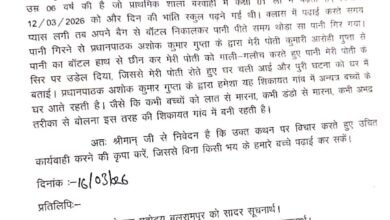 उम्र 06 वर्ष की है जो प्राथमिक शाला बरवाही में कक्षा 01 ली में
12/03/2026 को और दिन की भांति स्कूल पढ़ने गई थी। क्लास में पढ़ाई करते समय
प्यास लगी तब अपने बैग से बॉटल निकालकर पानी पीते समय थोड़ा सा पानी गिर गया।
पानी गिरने से प्रधानपाठक अशोक कुमार गुप्ता के द्वारा मेरी पोती कुमारी आरोही गुप्ता के
पानी का बॉटल हाथ से छीन कर मेरी पोती को गाली-गलौच करते हुए पानी मेरी पोती के
सिर पर उड़ेल दिया, जिससे मेरी पोती रोते हुए घर चली आई और पुरी घटना को घर में
बताई। प्रधानपाठक अशोक कुमार गुप्ता के द्वारा हमेशा यह शिकायत गांव में अन्यत्र बच्चों के
घर आते रहती है। जैसे कि कभी बच्चों को लात से मारना, कभी डंडो से मारना, कभी अभद्र
तरीका से बोलना इस तरह की शिकायत गांव में बनी रहती है।
अतः श्रीमान् जी से निवेदन है कि उक्त कथन पर विचार करते हुए उचित
कार्यवाही करने की कृपा करें, जिससे बिना किसी भय के हमारे बच्चे पढ़ाई कर सकें।
दिनांक :-16/03/026
प्रतिलिपिः-
महोदय बलरामपुर को सादर सूचनार्थ।